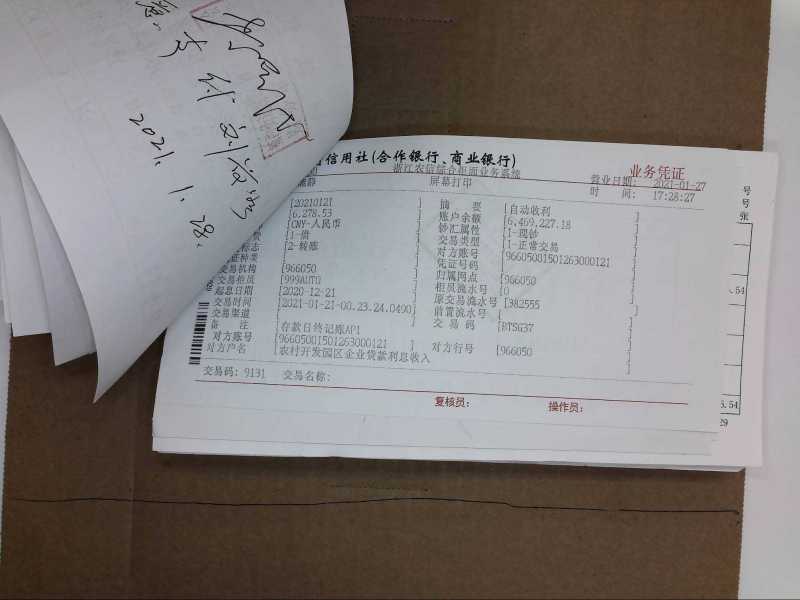 支付
2021. 1. 28.
信用社(合作银行、商业银行)
业务凭证
浙江农信综合柜面业务系统
营业日期: 2021-01-27
静 屏幕打印
时 间: 17:28:27
[20210121 ] 摘 要 [自动收利 ]
[6,278.53 ] 账户余额 [6,469,227.18 ]
[CNY-人民币 ] 钞汇属性 [1-现钞 ]
[1-借 ] 交易类型 [1-正常交易 ]
标志 [2-转账 ] 对方账号 [96605081501263000121 ]
证种类 [ ] 凭证号码 [ ]
交易机构 [966050 ] 归属网点 [966050 ]
交易柜员 [999AUTO ] 柜员流水号 [0 ]
起息日期 [2020-12-21 ] 原交易流水号 [382555 ]
交易时间 [2021-01-21-00.23.24.0490] 前置流水号 [ ]
交易渠道 [ ] 交 易 码 [BTSG37 ]
备 注 [存款日终记账API ]
对方账号 [96605001501263000121 ] 对方行号 [966050 ]
对方户名 [农村开发园区企业贷款利息收入 ]
交易码: 9131 交易名称:
复核员: 操作员:
号
号
张
.54
.54
29